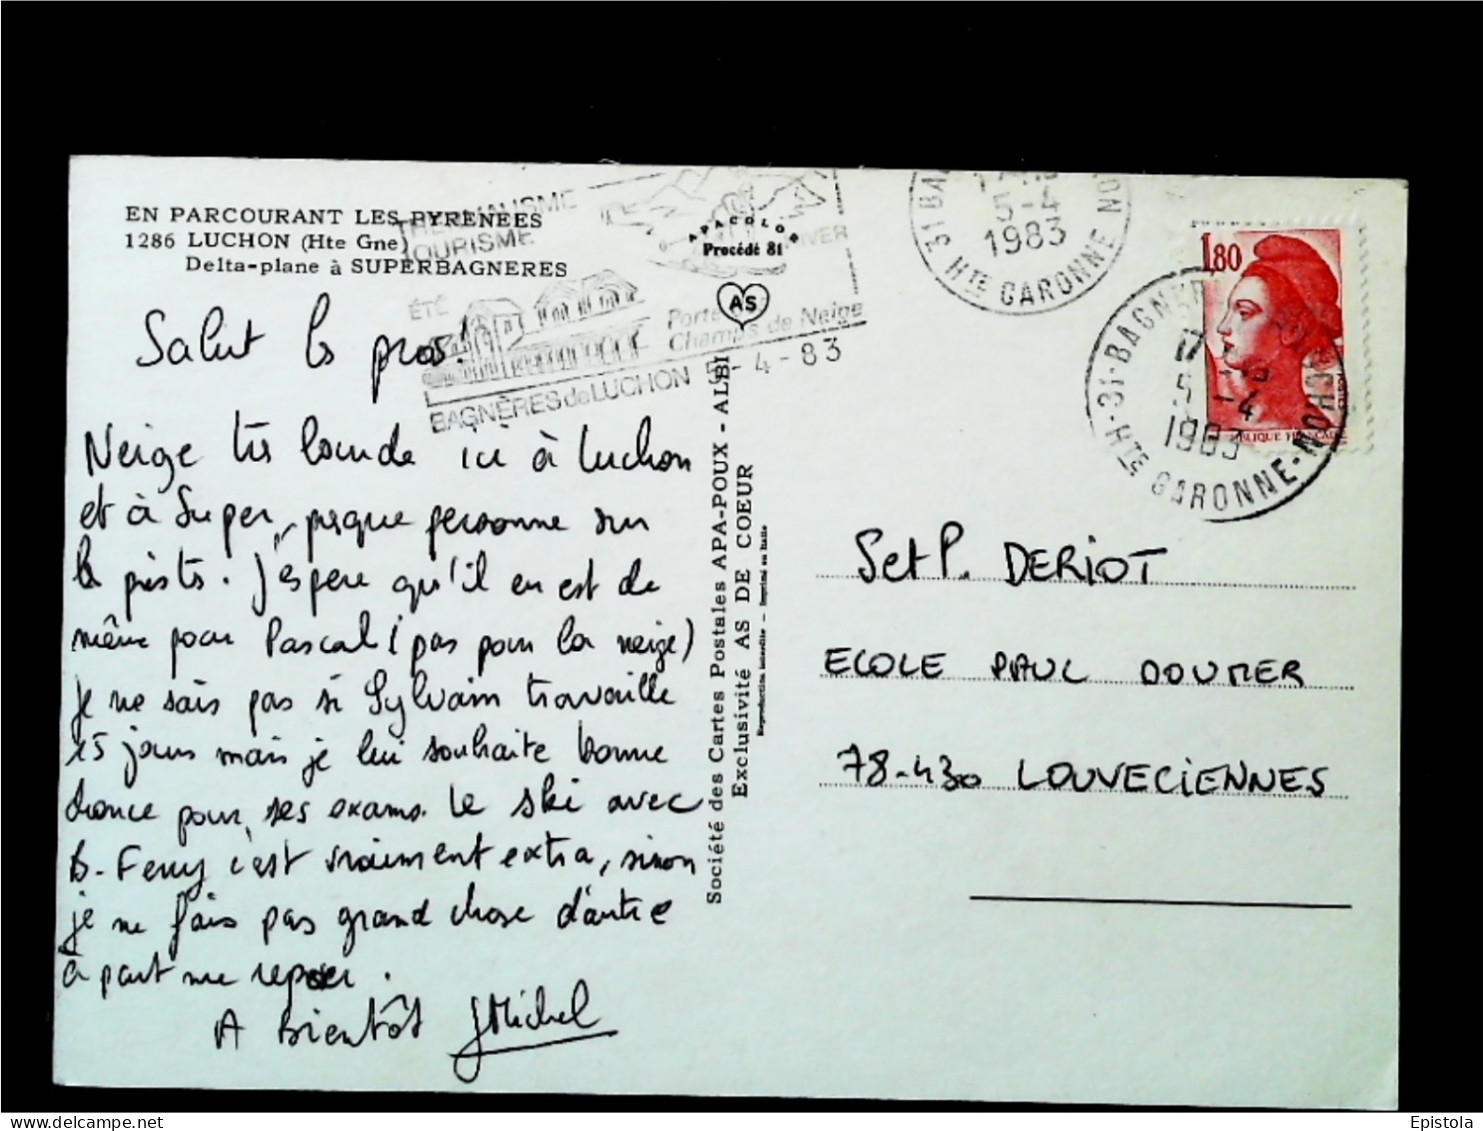 EN PARCOURANT LES PYRENEES
1286 LUCHON (Hte Gne)
Delta-plane à SUPERBAGNERES
THERMALISME
TOURISME
ÉTÉ
HIVER
Porte des
Champs de Neige
BAGNÈRES de LUCHON 5-4-83
APACOLOR
Procédé 81
AS
Salut les pros!
Neige très lourde ici à Luchon
et à Super, presque personne sur
les pistes. J'espère qu'il en est de
même pour Pascal (pas pour la neige)
Je ne sais pas si Sylvain travaille
15 jours mais je lui souhaite bonne
chance pour ses exams. Le ski avec
B. Ferry c'est vraiment extra, sinon
je ne fais pas grand chose d'autre
à part me reposer.
A Bientôt JMichel
Société des Cartes Postales APA-POUX - ALBI
Exclusivité AS DE COEUR
Reproduction interdite - Imprimé en Italie
5-4
1983
Hte GARONNE
1,80
31-BAGNERES
17 H
5-4
1983
Hte GARONNE
S et P. DERIOT
ECOLE PAUL DOUMER
78-430 LOUVECIENNES
delcampe.net
Epistola